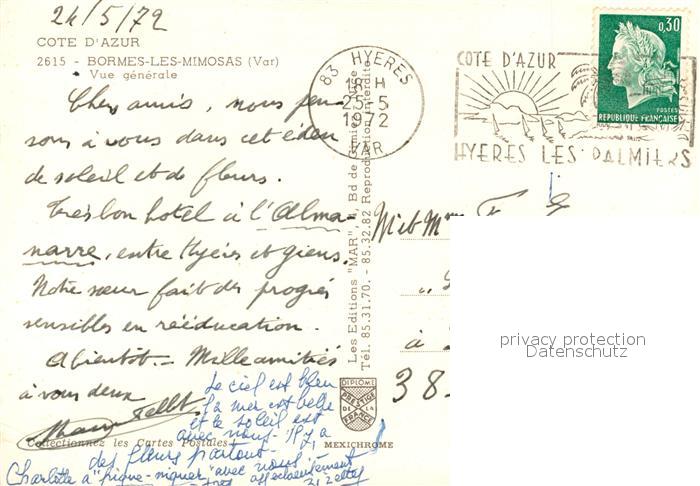 24/5/72
COTE D'AZUR
2615 - BORMES-LES-MIMOSAS (Var)
Vue générale
Chers amis, nous pen-
sons à vous dans cet éden
de soleil et de fleurs.
Très bon hotel à l'Alma-
narre, entre Hyères et Giens.
Notre sœur fait des progrès
sensibles en rééducation.
A bientôt. - Mille amitiés
à vous deux
Le ciel est bleu
la mer est belle
et le soleil est
avec nous. Il y a
des fleurs partout.
Charlotte a "pique-niqué" avec nous
affectueusement
Collectionnez les Cartes Postales
MEXICHROME
DIPLOME
PRESTIGE
DE LA
FRANCE
Les Editions "MAR", Bd de
Tél. 85.31.70. - 85.32.82 Reproduction interdite
83 HYERES
18 H
25-5
1972
VAR
COTE D'AZUR
HYERES LES PALMIERS
0,30
POSTES
REPUBLIQUE FRANÇAISE
M et Mme
à
38-
privacy protection
Datenschutz